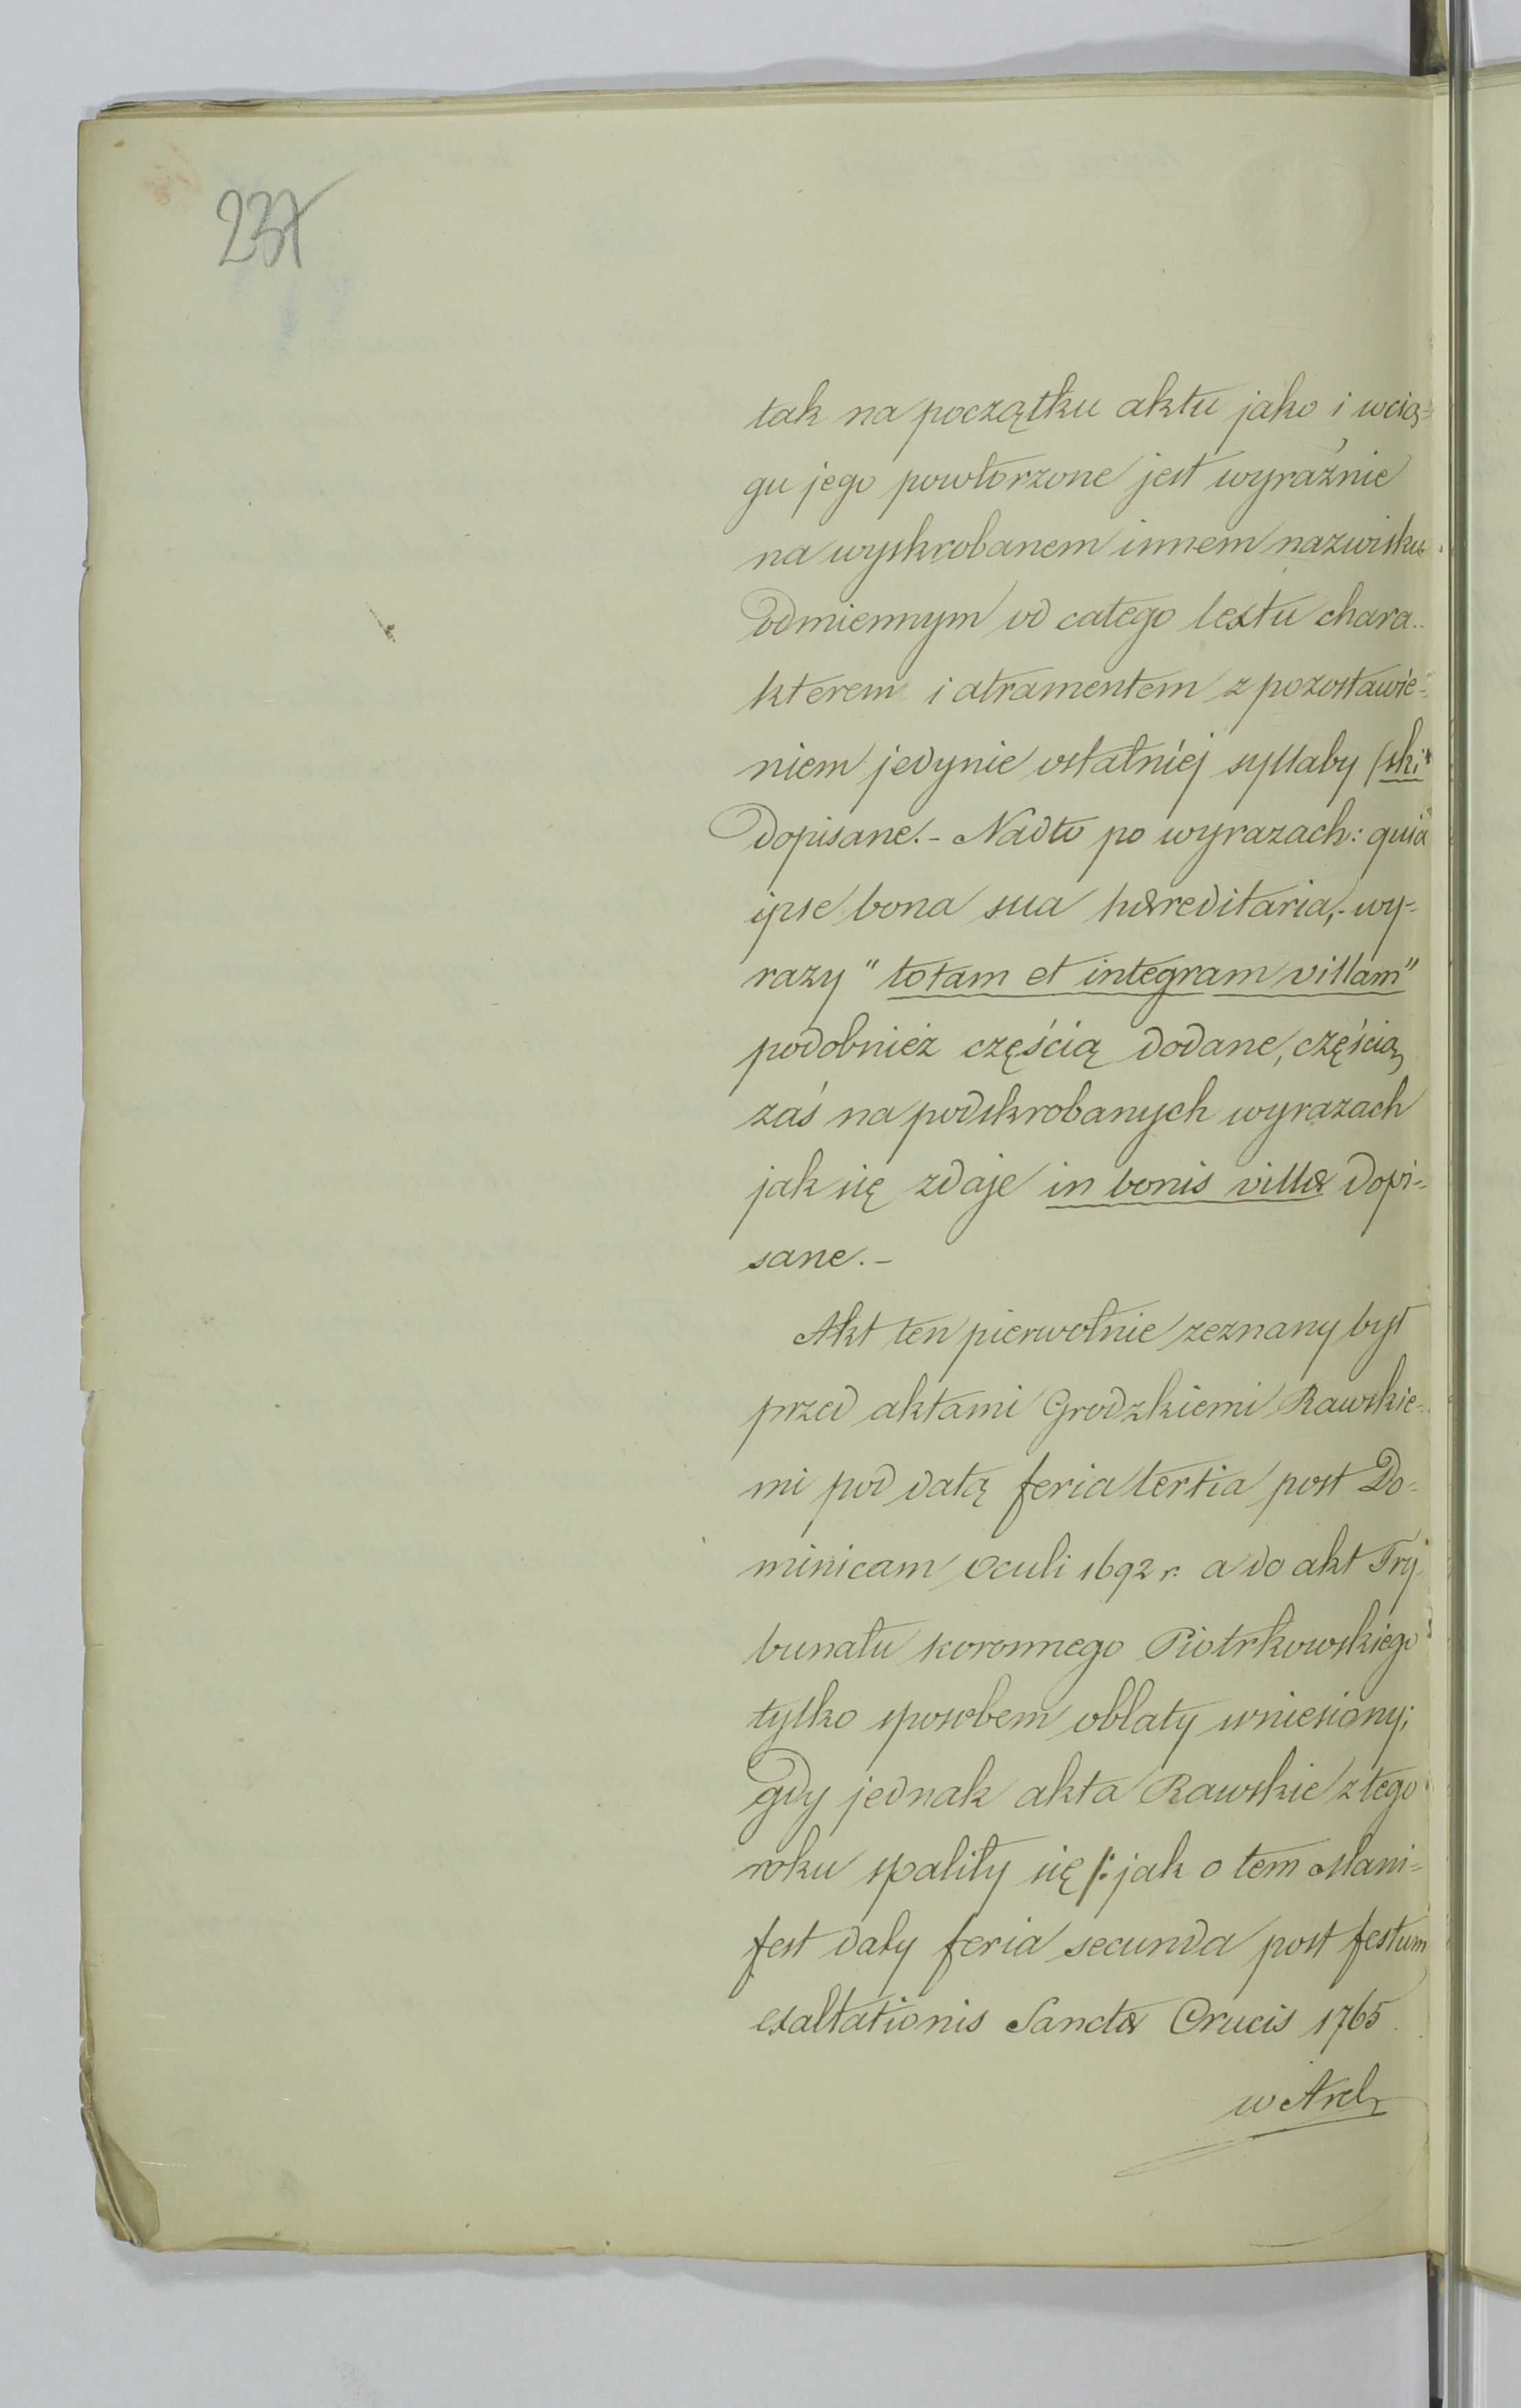 237
tak na początku aktu jako i wcią=
gu jego powtórzone jest wyraźnie
na wyskrobanem innem nazwisku
odmiennym od całego textu chara..
kterem i atramentem z pozostawie=
niem jedynie ostatniéj syllaby /ski
dopisane.- Nadto po wyrazach: quia
ipse bona sua hæreditaria,- wy=
razy "totam et integram villam"
podobnież częścią dodane, częścią
zaś na podskrobanych wyrazach
jak się zdaje in bonis villæ dopi=
sane.-
Akt ten pierwotnie zeznany był
przed aktami Grodzkiemi Rawskie=
mi pod datą feria tertia post Do=
minicam Oculi 1692 r. a do akt Try
bunału koronnego Piotrkowskiego
tylko sposobem oblaty wniesiony;
gdy jednak akta Rawskie z tego
roku spaliły się /: jak o tem Mani=
fest daty feria secunda post festum
exaltationis Sanctæ Crucis 1765
w Arch